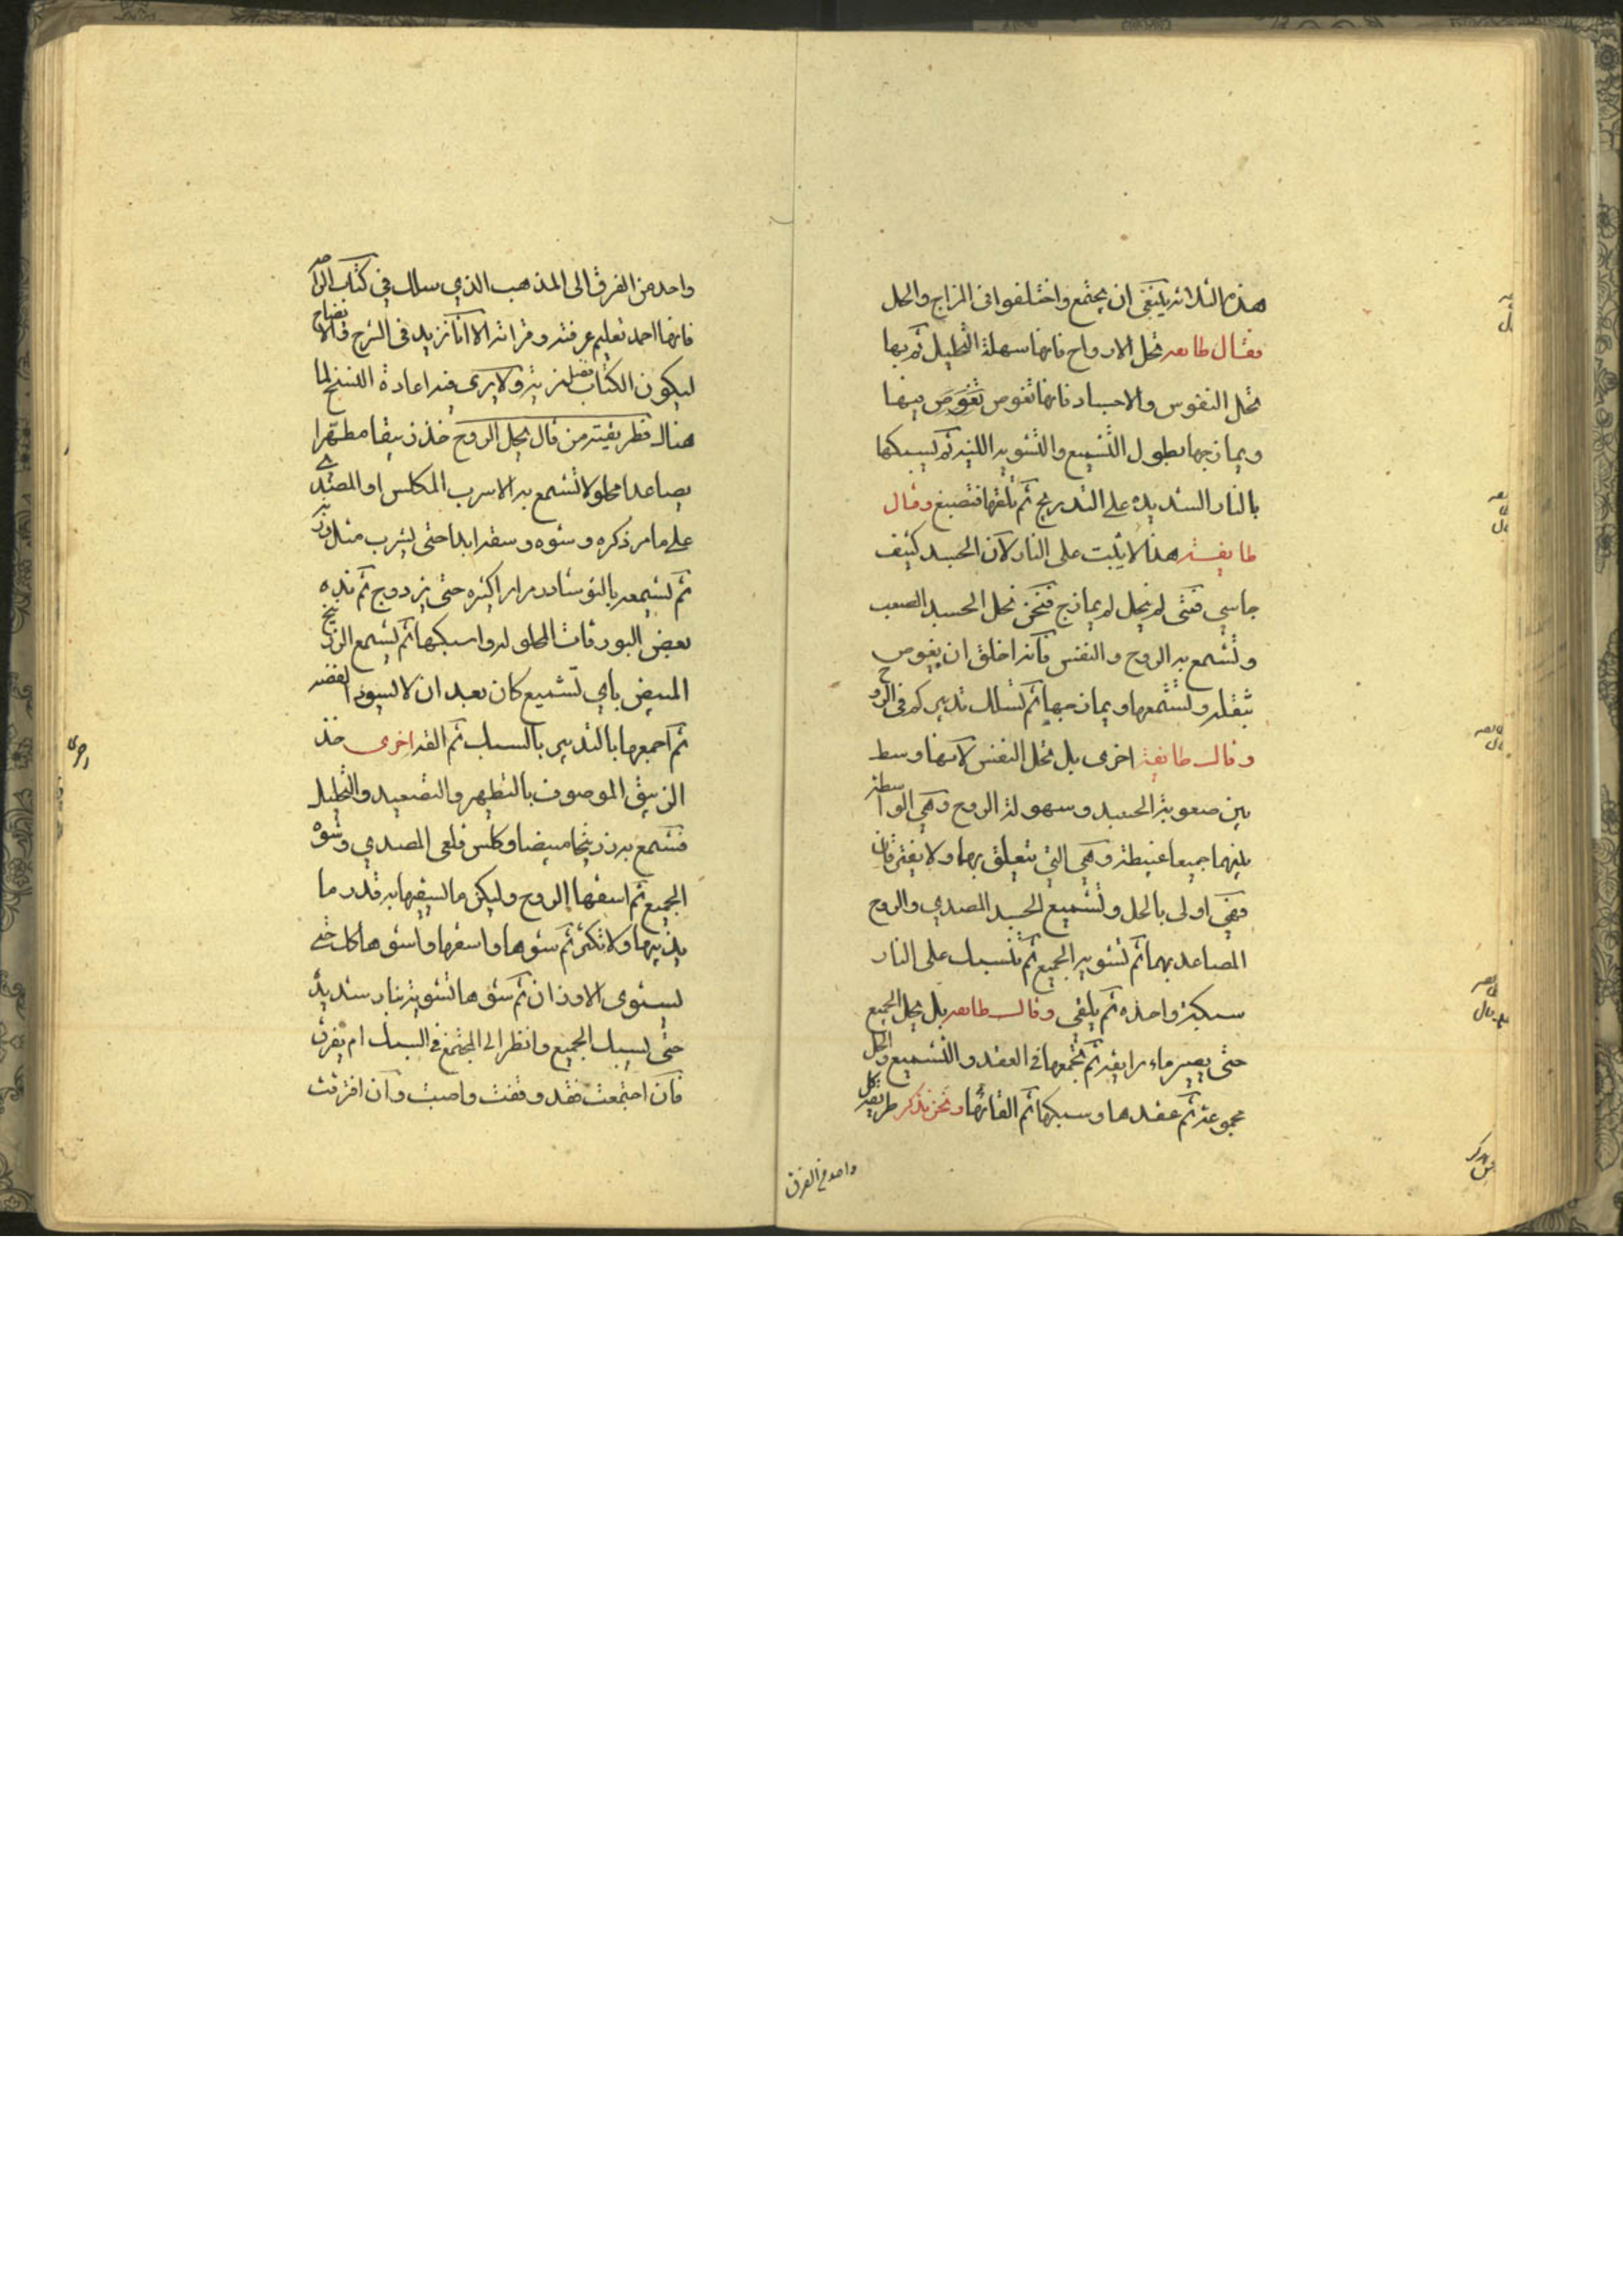 هذه الثلاثة ينبغي ان يجتمع واختلفوا في المزاج والحل
فقال طايفه تحل الارواح فانها سهلة التحليل ثم بها
تحل النفوس والاجساد فانها تغوص تغوص فيها
ويمازجها بطول التشميع والتشويه اللينه ثم يسبكها
بالنار الشديده على التدريج ثم تلقها فتصبغ وقال
طايفة هذا لا يثبت على النار لان الجسد كثيف
جاسي فمتى لم يحل لم يمازج فنحن نحل الجسد الصعب
ونشمع به الروح والنفس فانه اخلق ان يغوص
بثقله وتشمعها ويمازجها ثم تسلك تدبيركم في الروح
وقال طايفة اخرى بل تحل النفس لانها وسط
بين صعوبة الجسد وسهولة الروح وهي الواسطة
بينهما جميعا وهي التي يتعلق بهما ولا يفترقان
فهي اولى بالحل وتشميع الجسد المصدي والروح
المصاعد بهما ثم تشويه الجميع ثم تسبك على النار
سبكة واحده ثم يلقى وقال طايفه بل يحل الجميع
حتى يصير ماء رايقه ثم تجمعها في العقد والتشميع والحل
مجموعة ثم عقدها وسبكها ثم القائها ونحن نذكر طريقة كل
واحد من الفرق
واحد من الفرق الى المذهب الذي سلك في كتاب الراحه
فانها احمد تعليم عرفته وقراته الا انا نزيد في الشرح والايضاح
ليكون الكتاب فضل مزية ولا يرى فيه اعادة النسخ لما
هناك فطريقة من قال يحل الروح خذ زيبقا مطهرا
مصاعدا محلولا تشمع به الاسرب المكلس او المصدي
على ما مر ذكره وشوه وسقه ابدا حتى يشرب مثل وزنه
ثم تشمعه بالنوشادر مرارا كثيره حتى يزدوج ثم تذبه
بعض البورقات المحلوله واسبكها ثم تشمع الزرنيخ
المبيض باي تشميع كان بعد ان لا يسود الفضه
ثم اجمعها بالتدبير بالسبك ثم القه اخرى خذ
اخرى
الزيبق الموصوف بالتطهير والتصعيد والتحليل
فتشمع به زرنيخا مبيضا وكلس قلعي المصدي وشوه
الجميع ثم اسقها الروح وليكن ما تسقيها به قدر ما
يذيبها ولا تكثر ثم شوها واسقها واشوها كل حتى
يستوي الاوزان ثم شوها تشوية بنار شديدة
حتى يسبك الجميع وانظر الى المجتمع في السبك ام يفرق
فان اجتمعت فقد وقفت واصبت وان افترقت